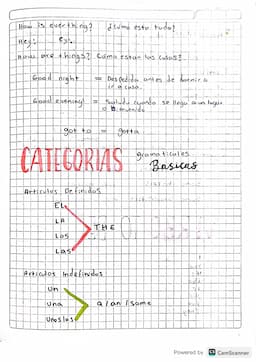 How is everthing? ¿Cómo esta todo?
Hey: Ey.
How are things? Cómo estan las cosas?
Good night = Despedida antes de dormir o
ir a casa.
Good evening = Saludo cuando se llega a un lugar
got to = gotta
CATEGORIAS gramaticales
Basicas
Articulos Definidos
EL
LA
Los
Las
THE
Articulos Indefinidos
Un
Una
Unos/as
a/an/some
Powered by CS CamScanner